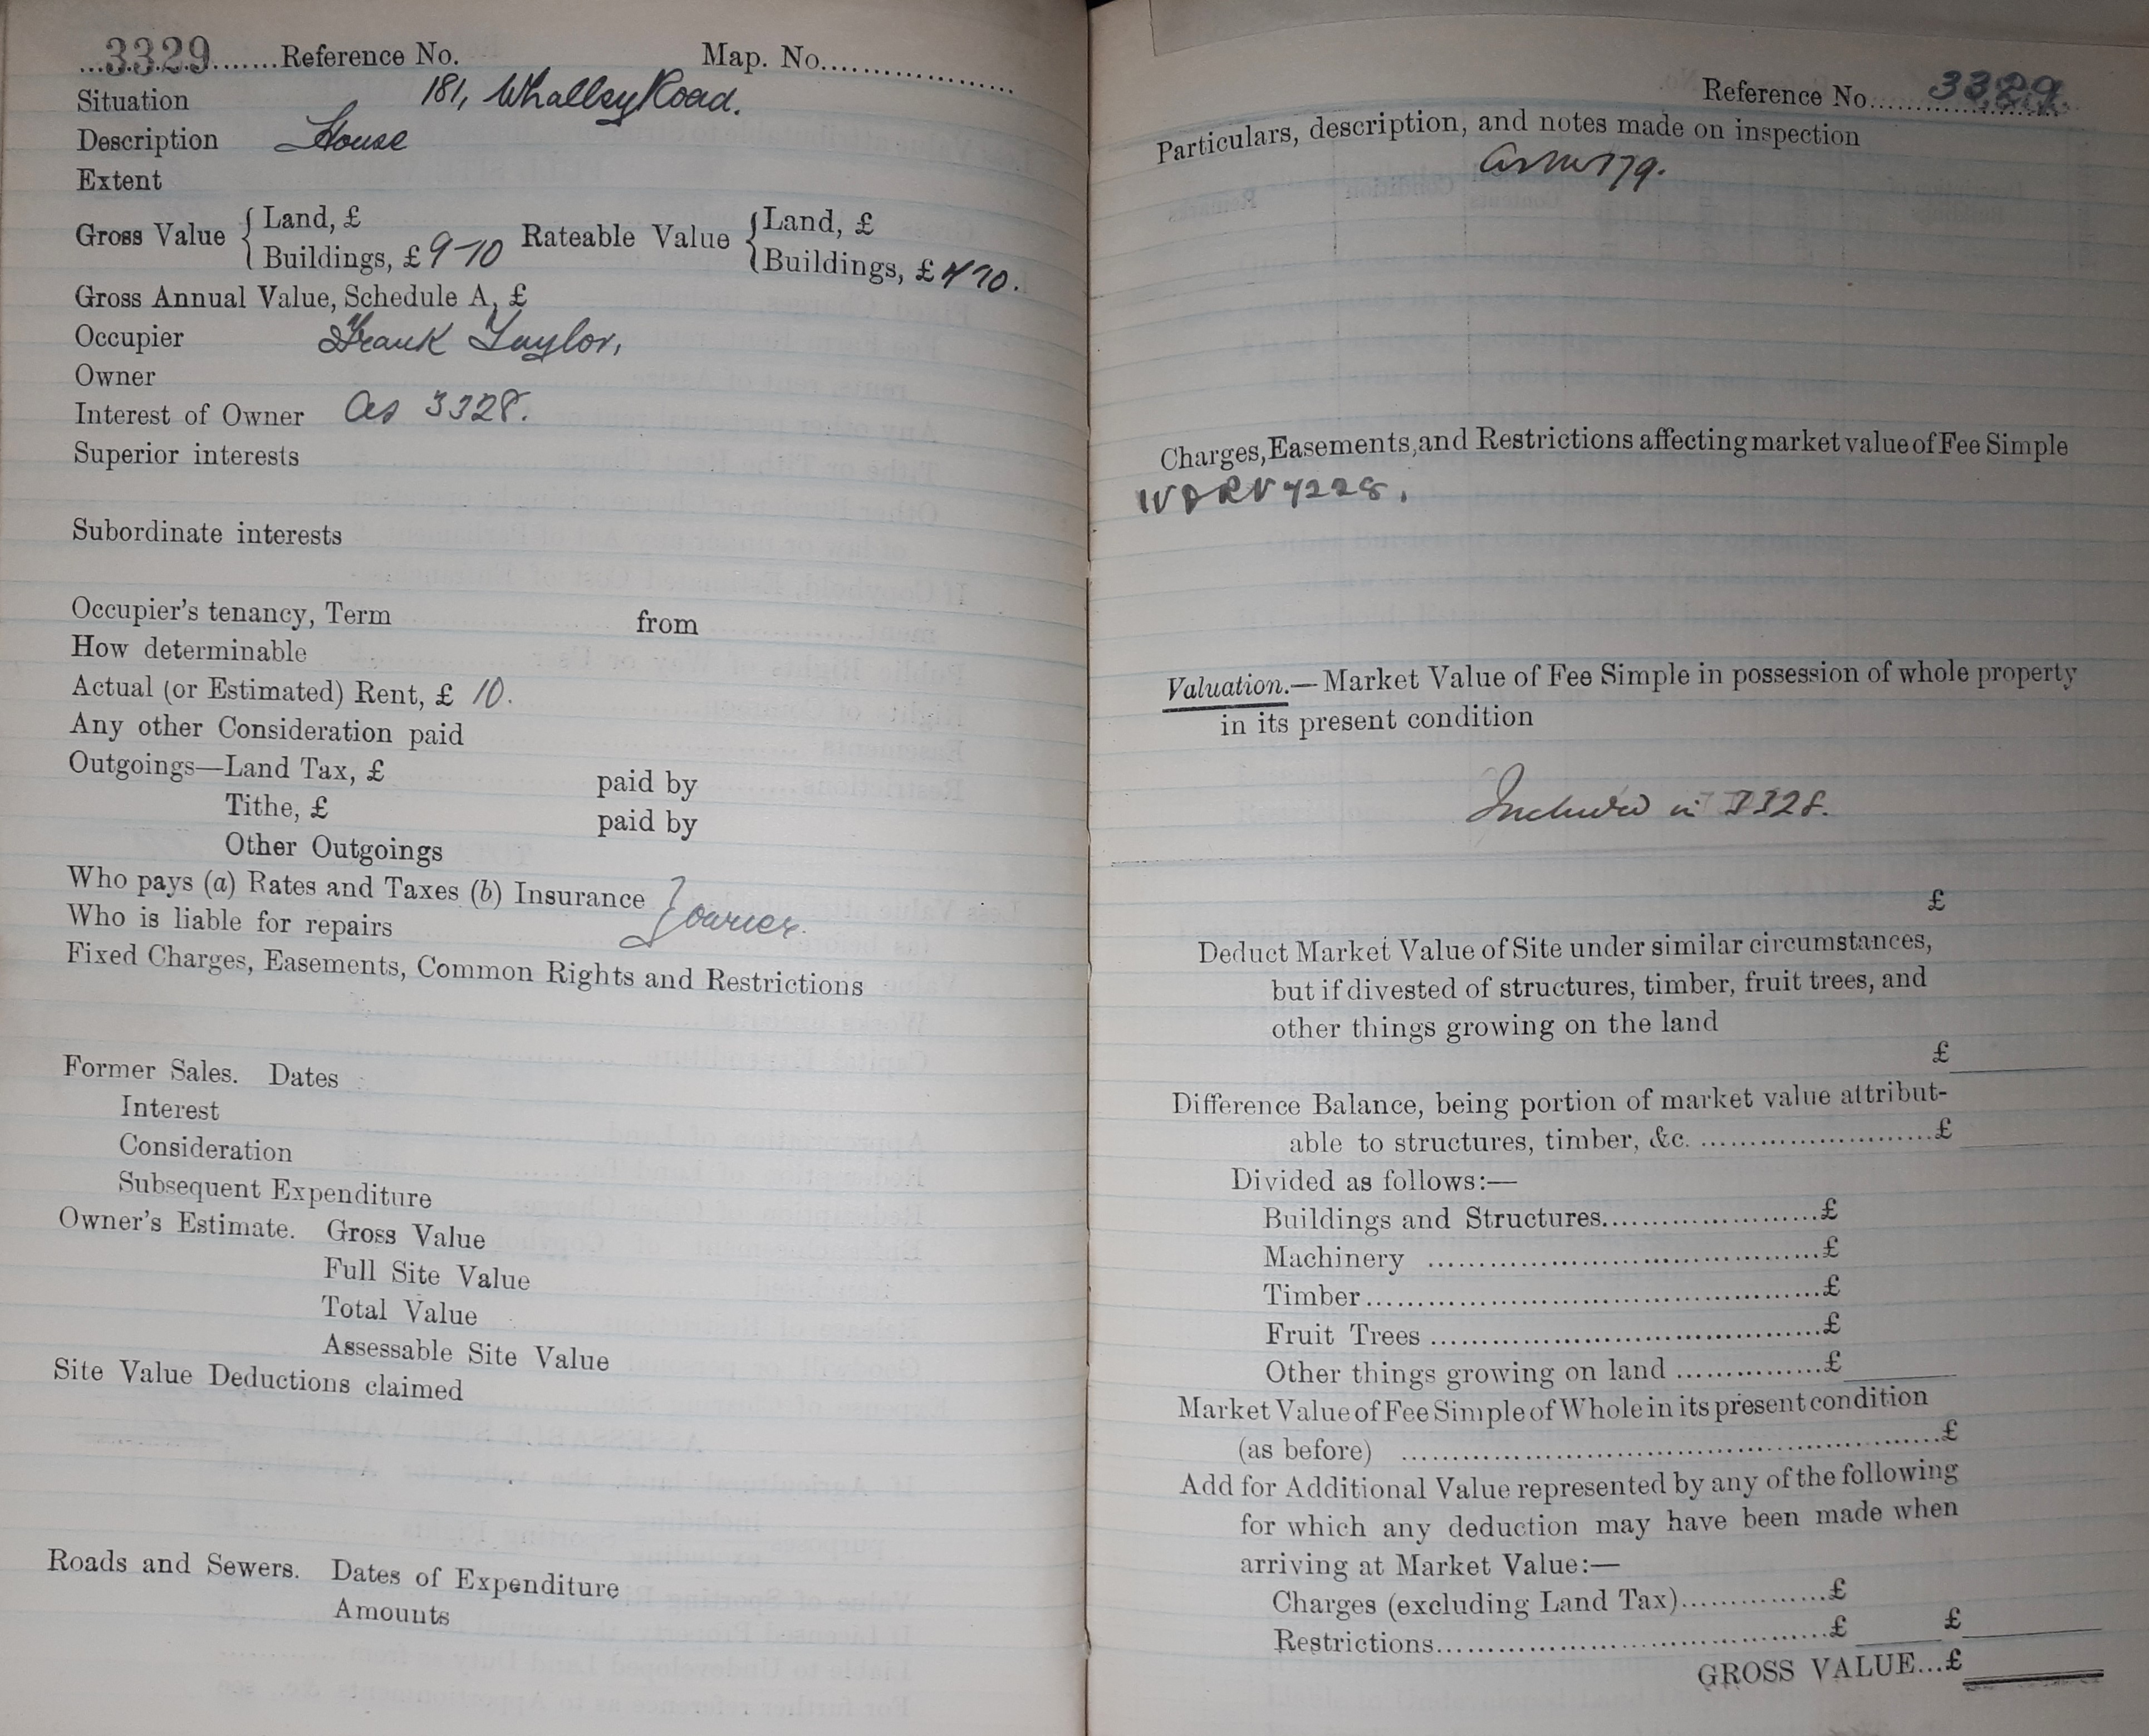 3329 Reference No. Map. No.
Situation 181, Whalley Road.
Description House
Extent
Gross Value { Land, £
Buildings, £ 9-10 Rateable Value { Land, £
Buildings, £
Gross Annual Value, Schedule A, £
Occupier Frank Taylor,
Owner
Interest of Owner as 3328.
Superior interests
Subordinate interests
Occupier's tenancy, Term from
How determinable
Actual (or Estimated) Rent, £ 10.
Any other Consideration paid
Outgoings—Land Tax, £ paid by
Tithe, £ paid by
Other Outgoings
Who pays (a) Rates and Taxes (b) Insurance
Who is liable for repairs } owner.
Fixed Charges, Easements, Common Rights and Restrictions
Former Sales. Dates
Interest
Consideration
Subsequent Expenditure
Owner's Estimate. Gross Value
Full Site Value
Total Value
Assessable Site Value
Site Value Deductions claimed
Roads and Sewers. Dates of Expenditure
Amounts
Reference No. 3329
Particulars, description, and notes made on inspection
179.
Charges, Easements, and Restrictions affecting market value of Fee Simple
Valuation.—Market Value of Fee Simple in possession of whole property
in its present condition
Included in 3328.
£
Deduct Market Value of Site under similar circumstances,
but if divested of structures, timber, fruit trees, and
other things growing on the land
£
Difference Balance, being portion of market value attribut-
able to structures, timber, &c. £
Divided as follows:—
Buildings and Structures £
Machinery £
Timber £
Fruit Trees £
Other things growing on land £
Market Value of Fee Simple of Whole in its present condition
(as before) £
Add for Additional Value represented by any of the following
for which any deduction may have been made when
arriving at Market Value:—
Charges (excluding Land Tax) £
Restrictions £ £
GROSS VALUE...£